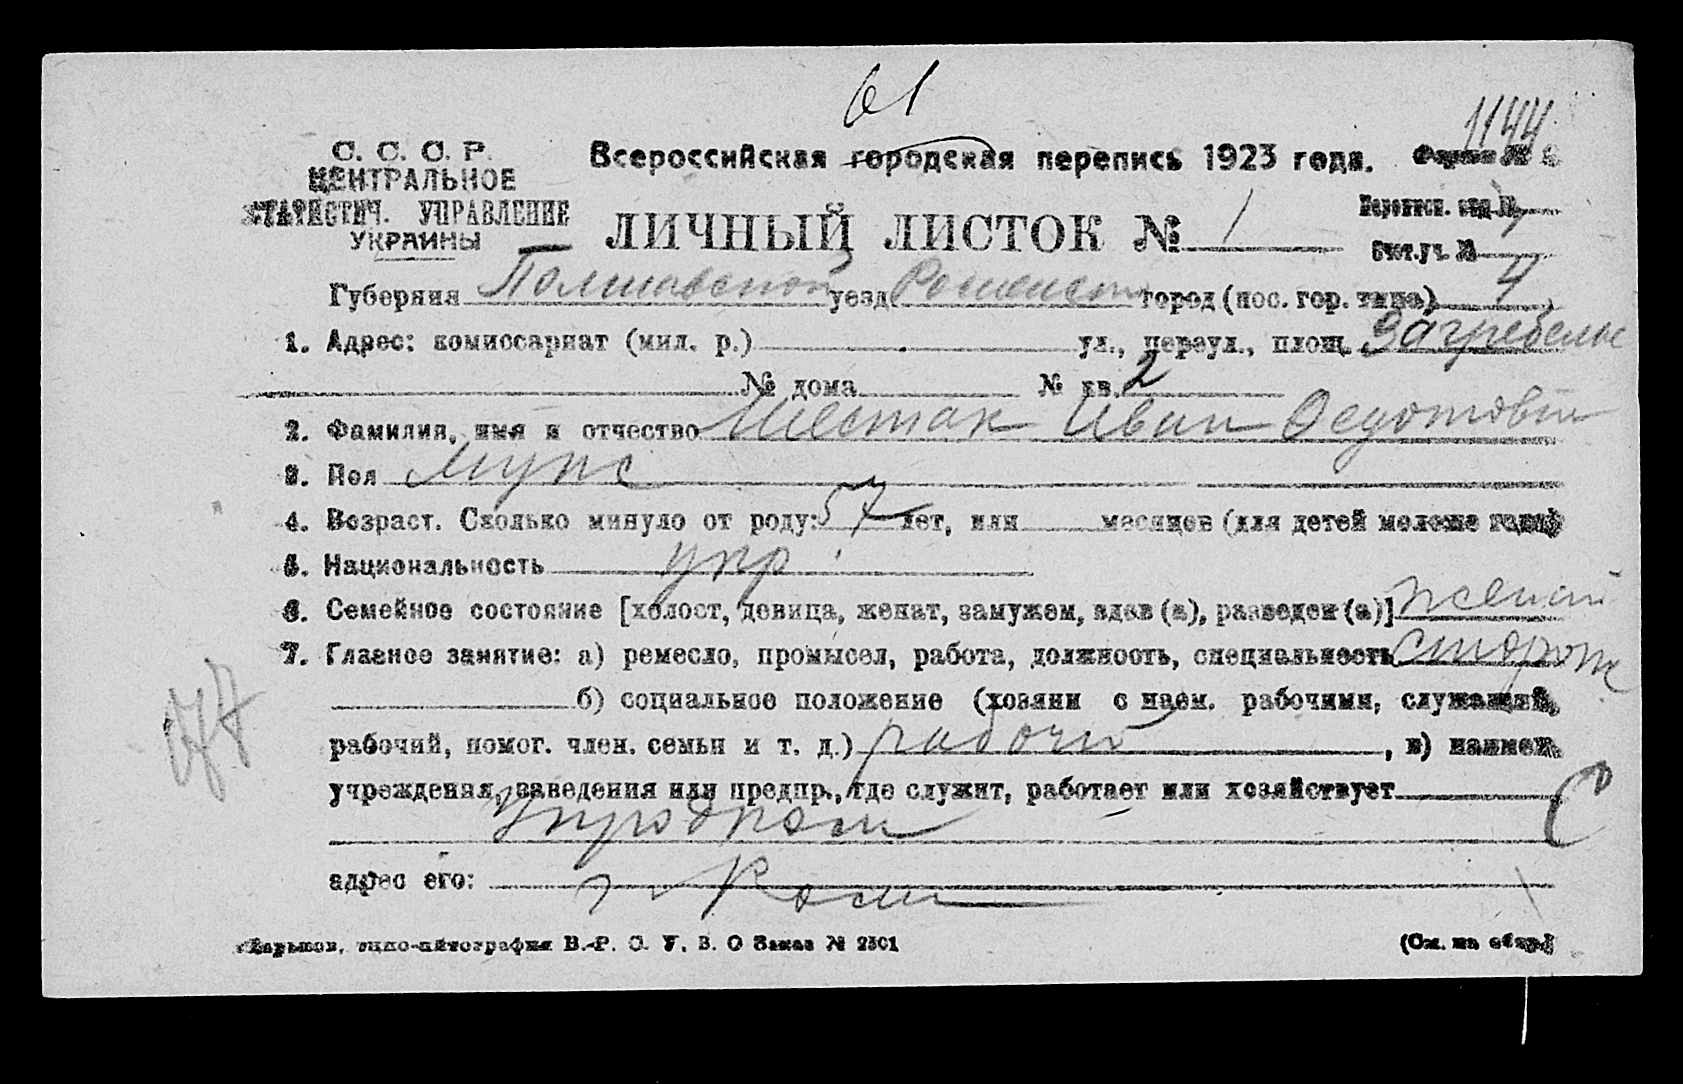 61
1144
С. С. С. Р.
ЦЕНТРАЛЬНОЕ
СТАТИСТИЧ. УПРАВЛЕНИЕ
УКРАИНЫ
Всероссийская городская перепись 1923 года. Форма №
ЛИЧНЫЙ ЛИСТОК № 1
Переписн. отд. №
Счет. уч. № 4
Губерния Полтавской уезд Роменск город (пос. гор. типа)
1. Адрес: комиссариат (мил. р.) ул., переул., площ. Загребелье
№ дома № кв. 2
2. Фамилия, имя и отчество Шестак Иван Федотович
3. Пол Мужс
4. Возраст. Сколько минуло от роду: 57 лет, или месяцев (для детей моложе года)
5. Национальность укр.
6. Семейное состояние [холост, девица, женат, замужем, вдов (а), разведен (а)] женат
7. Главное занятие: а) ремесло, промысел, работа, должность, специальность сторож
б) социальное положение (хозяин с наем. рабочими, служащий,
рабочий, помог. член. семьи и т. д.) рабочий, в) наимен.
учреждения, заведения или предпр., где служит, работает или хозяйствует
Упродком
адрес его: г Ром
Харьков, типо-литография В.-Р. С. У. В. О Заказ № 2301
(См. на обор.)